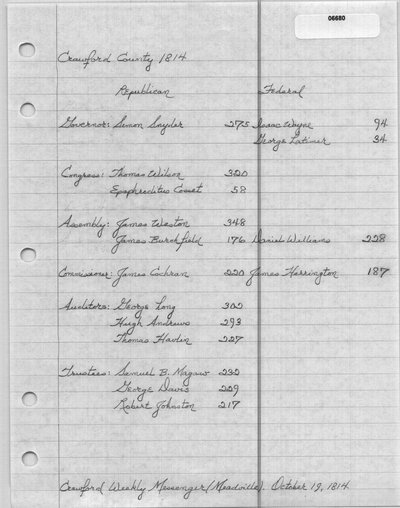 06680
Crawford County 1814
Republican Federal
Governor: Simon Snyder 275 Isaac Wayne 94
George Latimer 34
Congress: Thomas Wilson 320
Epaphroditus Cossit 58
Assembly: James Weston 348
James Burchfield 176 Daniel Williams 228
Commissioner: James Cochran 220 James Herrington 187
Auditors: George Long 302
Hugh Andrews 293
Thomas Havlin 227
Trustees: Samuel B. Magaw 232
George Davis 229
Robert Johnston 217
Crawford Weekly Messenger (Meadville). October 19, 1814.